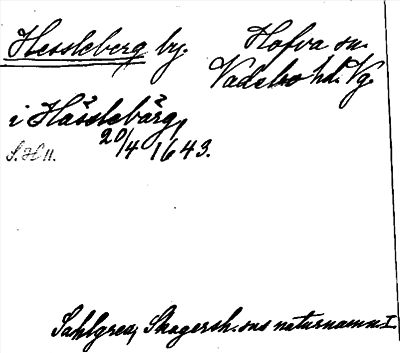 Hessleberg by. Hofva sn.
Vadsbo hd. Vg.
i Hässlebärg
20/4 1643.
S. H 11.
Sahlgren, Skagersh. sns naturnamn I